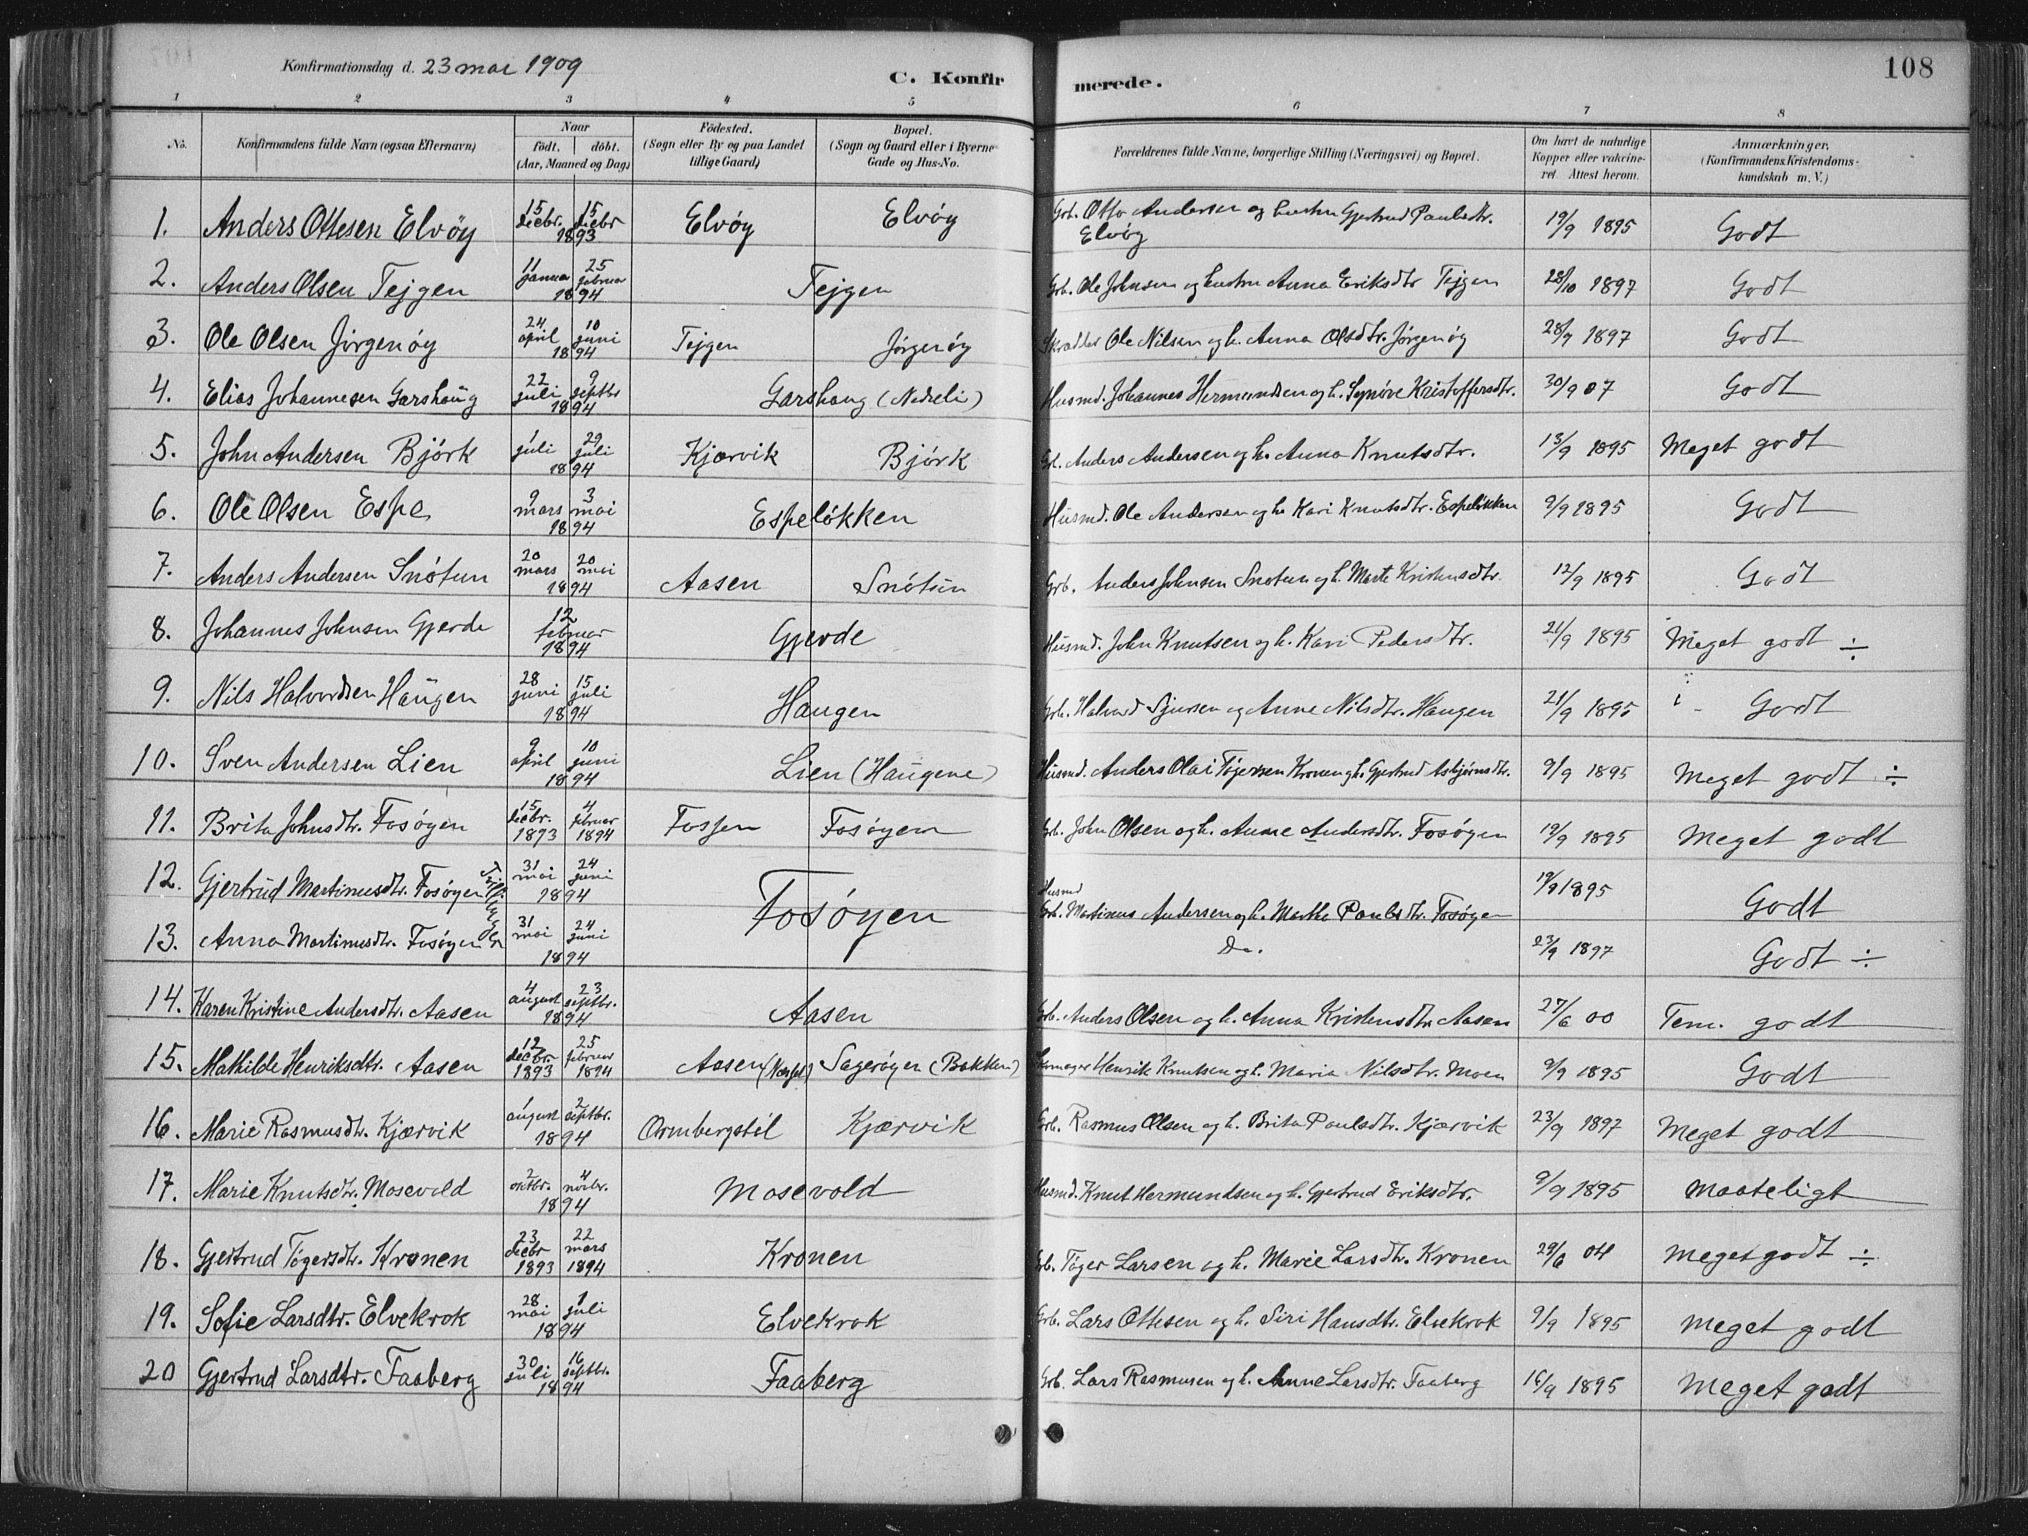 Konfirmationsdag d. 23 mai 1909
C. Konfirmerede.
108
1 2 3 4 5 6 7 8
No.
Konfirmandens fulde Navn (ogsaa Efternavn)
Naar
födt. döbt.
(Aar, Maaned og Dag)
Födested.
(Sogn eller By og paa Landet
tillige Gaard)
Bopæl.
(Sogn og Gaard eller i Byerne
Gade og Hus-No.
Forældrenes fulde Navne, borgerlige Stilling (Næringsvei) og Bopæl.
Om havt de naturlige
Kopper eller vakcine-
ret. Attest herom.
Anmærkninger.
(Konfirmandens Kristendoms-
kundskab m. V.)
1. Anders Ottesen Elvöy 15 decbr. 15 decbr 1893 Elvöy Elvöy Grb. Otto Andersen og hustru Gjertrud Paulsdtr. Elvöy 19/9 1895 Godt
2. Anders Olsen Tejgen 11 januar 25 februar 1894 Tejgen Grb. Ole Johnsen og hustru Anna Eriksdtr Tejgen 28/10 1897 Godt
3. Ole Olsen Jörgenöy 24 april 10 juni 1894 Tejgen Jörgenöy Skrædder Ole Nilsen og h. Anna Olsdtr. Jörgenöy 28/9 1897 Godt
4. Elias Johannesen Garshaug 22 juli 9 septbr 1894 Garshaug (Nedreli) Husmd. Johannes Hermundsen og h. Synöve Kristoffersdtr. 30/9 07 Godt
5. John Andersen Björk 1 juli 29 juli 1894 Kjærvik Björk Grb. Anders Andersen og h. Anna Knutsdtr. 13/9 1895 Meget godt
6. Ole Olsen Espe 9 mars 3 mai 1894 Espelökken Husmd. Ole Andersen og h. Kari Knutsdtr. Espelökken 9/9 1895 Godt
7. Anders Andersen Snötun 20 mars 20 mai 1894 Aasen Snötun Grb. Anders Johnsen Snotun og h. Marte Kristensdtr. 12/9 1895 Godt
8. Johannes Johnsen Gjerde 12 februar 1894 Gjerde Husmd. John Knutsen og h. Kari Pedersdtr. 21/9 1895 Meget godt ÷
9. Nils Halvordsen Haugen 28 juni 15 juli 1894 Haugen Grb. Halvard Sjursen og Anne Nilsdtr. Haugen 21/9 1895 Godt
10. Sven Andersen Lien 9 april 10 juni 1894 Lien (Haugene) Husmd. Anders Olai Tögersen Kronen og h. Gjertrud Asbjörnsdtr. 9/9 1895 Meget godt ÷
11. Brita Johnsdtr. Fosöyen 15 decbr. 1893 4 februar 1894 Fossen Fosöyen Grb. John Olsen og h. Anne Andersdtr. Fosöyen 19/9 1895 Meget godt
12. Gjertrud Martinusdtr. Fosöyen Tvillinger 31 mai 24 juni 1894 Fosöyen Husmd Grb. Martinus Andersen og h. Marthe Paulsdtr. Fosöyen 19/9 1895 Godt
13. Anna Martinusdtr. Fosöyen 31 mai 24 juni 1894 Do. 23/9 1897 Godt ÷
14. Karen Kristine Andersdtr. Aasen 4 august 23 septbr. 1894 Aasen Grb. Anders Olsen og h. Anna Kristensdtr Aasen 27/6 00 Tem. godt
15. Mathilde Henriksdtr. Aasen 12 decbr. 1893 25 februar 1894 Aasen Sageröyen (Bakken) Henrik Knutsen og h. Maria Nilsdtr. Moen 9/9 1895 Godt
16. Marie Rasmusdtr. Kjærvik 1 august 2 septbr. 1894 Ormbergstöl Kjærvik Grb. Rasmus Olsen og h. Brita Paulsdtr. Kjærvik 23/9 1897 Meget godt
17. Marie Knutsdtr. Mosevold 2 oktbr. 4 novbr. 1894 Mosevold Husmd. Knut Hermundsen og h. Gjertrud Eriksdtr. 9/9 1895 Maateligt
18. Gjertrud Tögersdtr. Kronen 23 decbr 1893 22 mars 1894 Kronen Grb. Töger Larsen og h. Marie Larsdtr. Kronen 29/6 04 Meget godt ÷
19. Sofie Larsdtr. Elvekrok 28 mai 1 juli 1894 Elvekrok Grb. Lars Ottesen og h. Siri Hansdtr. Elvekrok 9/9 1895 Meget godt
20 Gjertrud Larsdtr. Faaberg 30 juli 16 septbr. 1894 Faaberg Grb. Lars Rasmusen og h. Anne Larsdtr. Faaberg 16/9 1895 Meget godt